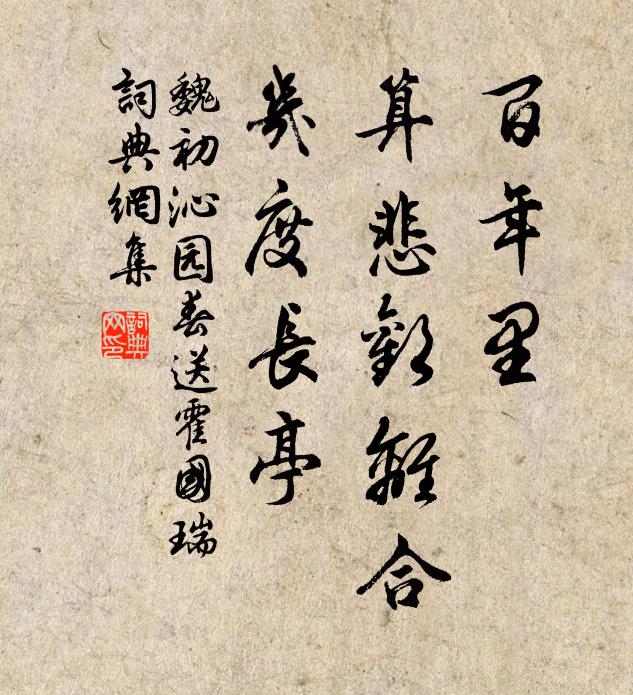 百年里
算悲歡離合
幾度長亭
魏初沁园春送霍國瑞
詞典網集
詞典
网印